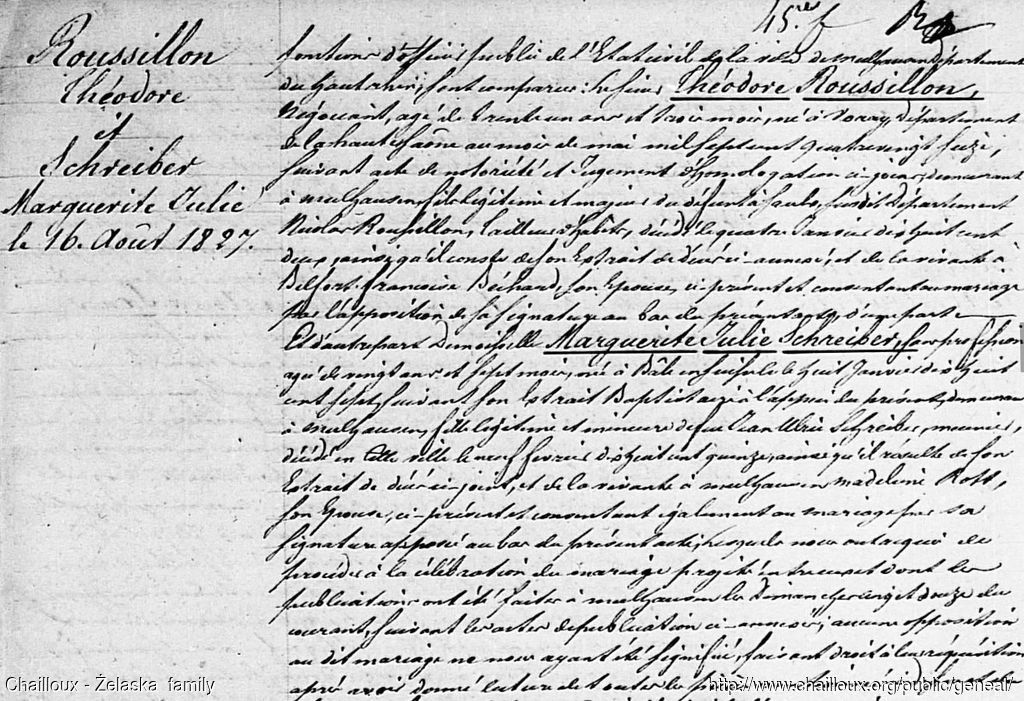 45.re f
Roussillon
Théodore
et
Schreiber
Marguerite Julie
le 16. Août 1827.
fonctions d'officier public de l'Etat civil de la ville de mulhausen département
du hautrhin, sont comparus: le sieur Théodore Roussillon,
Négociant, agé de trente un ans et trois mois, né à Voray, département
de la haute Saône au mois de mai mil sept cent quatre vingt seize,
suivant acte de notoriété et Jugement d'homologation ci-joints, demeurant
à mulhausen, fils légitime et majeur du défunt à Saulx, susdit département
Nicolas Roussillon, tailleur d'habits, décédé le quatre Janvier dixhuit cent
deux, ainsi qu'il conste de son Extrait de décès ci-annexé, et de la vivante à
Belfort françoise Béchard, son Epouse, ci-présente et consentant au mariage
par l'apposition de sa signature au bas du présent acte, d'une part
Et d'autre part Demoiselle Marguerite Julie Schreiber, sans profession
agée de vingt ans et sept mois, née à Bâle en suisse le huit Janvier dixhuit
cent sept, suivant son Extrait Baptistaire à l'appui du présent, demeurant
à mulhausen, fille légitime et mineure de feu Jean Ulric Schreiber, meunier,
décédé en cette ville le neuf fevrier dixhuit cent quinze, ainsi qu'il résulte de son
Extrait de décès ci-joint, et de la vivante à mulhausen madeleine Rott,
son Epouse, ci-présente et consentant également au mariage par sa
signature apposée au bas du présent acte, Lesquels nous ont requis de
procéder à la célébration du mariage projeté entre eux et dont les
publications ont été faites à mulhausen les Dimanches cinq et douze du
courant, suivant les actes de publication ci-annexés; aucune opposition
au dit mariage ne nous ayant été signifiée, faisant droit à leur réquisition
après avoir donné lecture de toutes les
Chailloux - Żelaska family
http://www.chailloux.org/public/geneal/